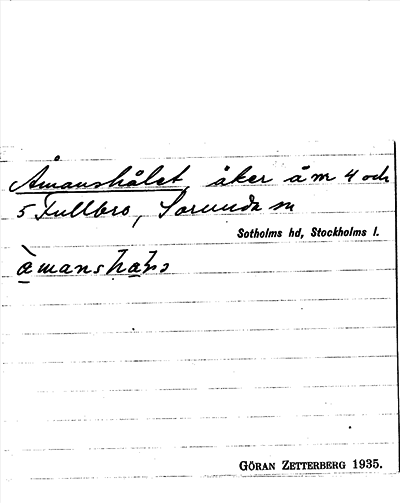 Åmanshålet, åker å m 4 och
5 Fullbro, Sorunda sn
Sotholms hd, Stockholms l.
GÖRAN ZETTERBERG 1935.